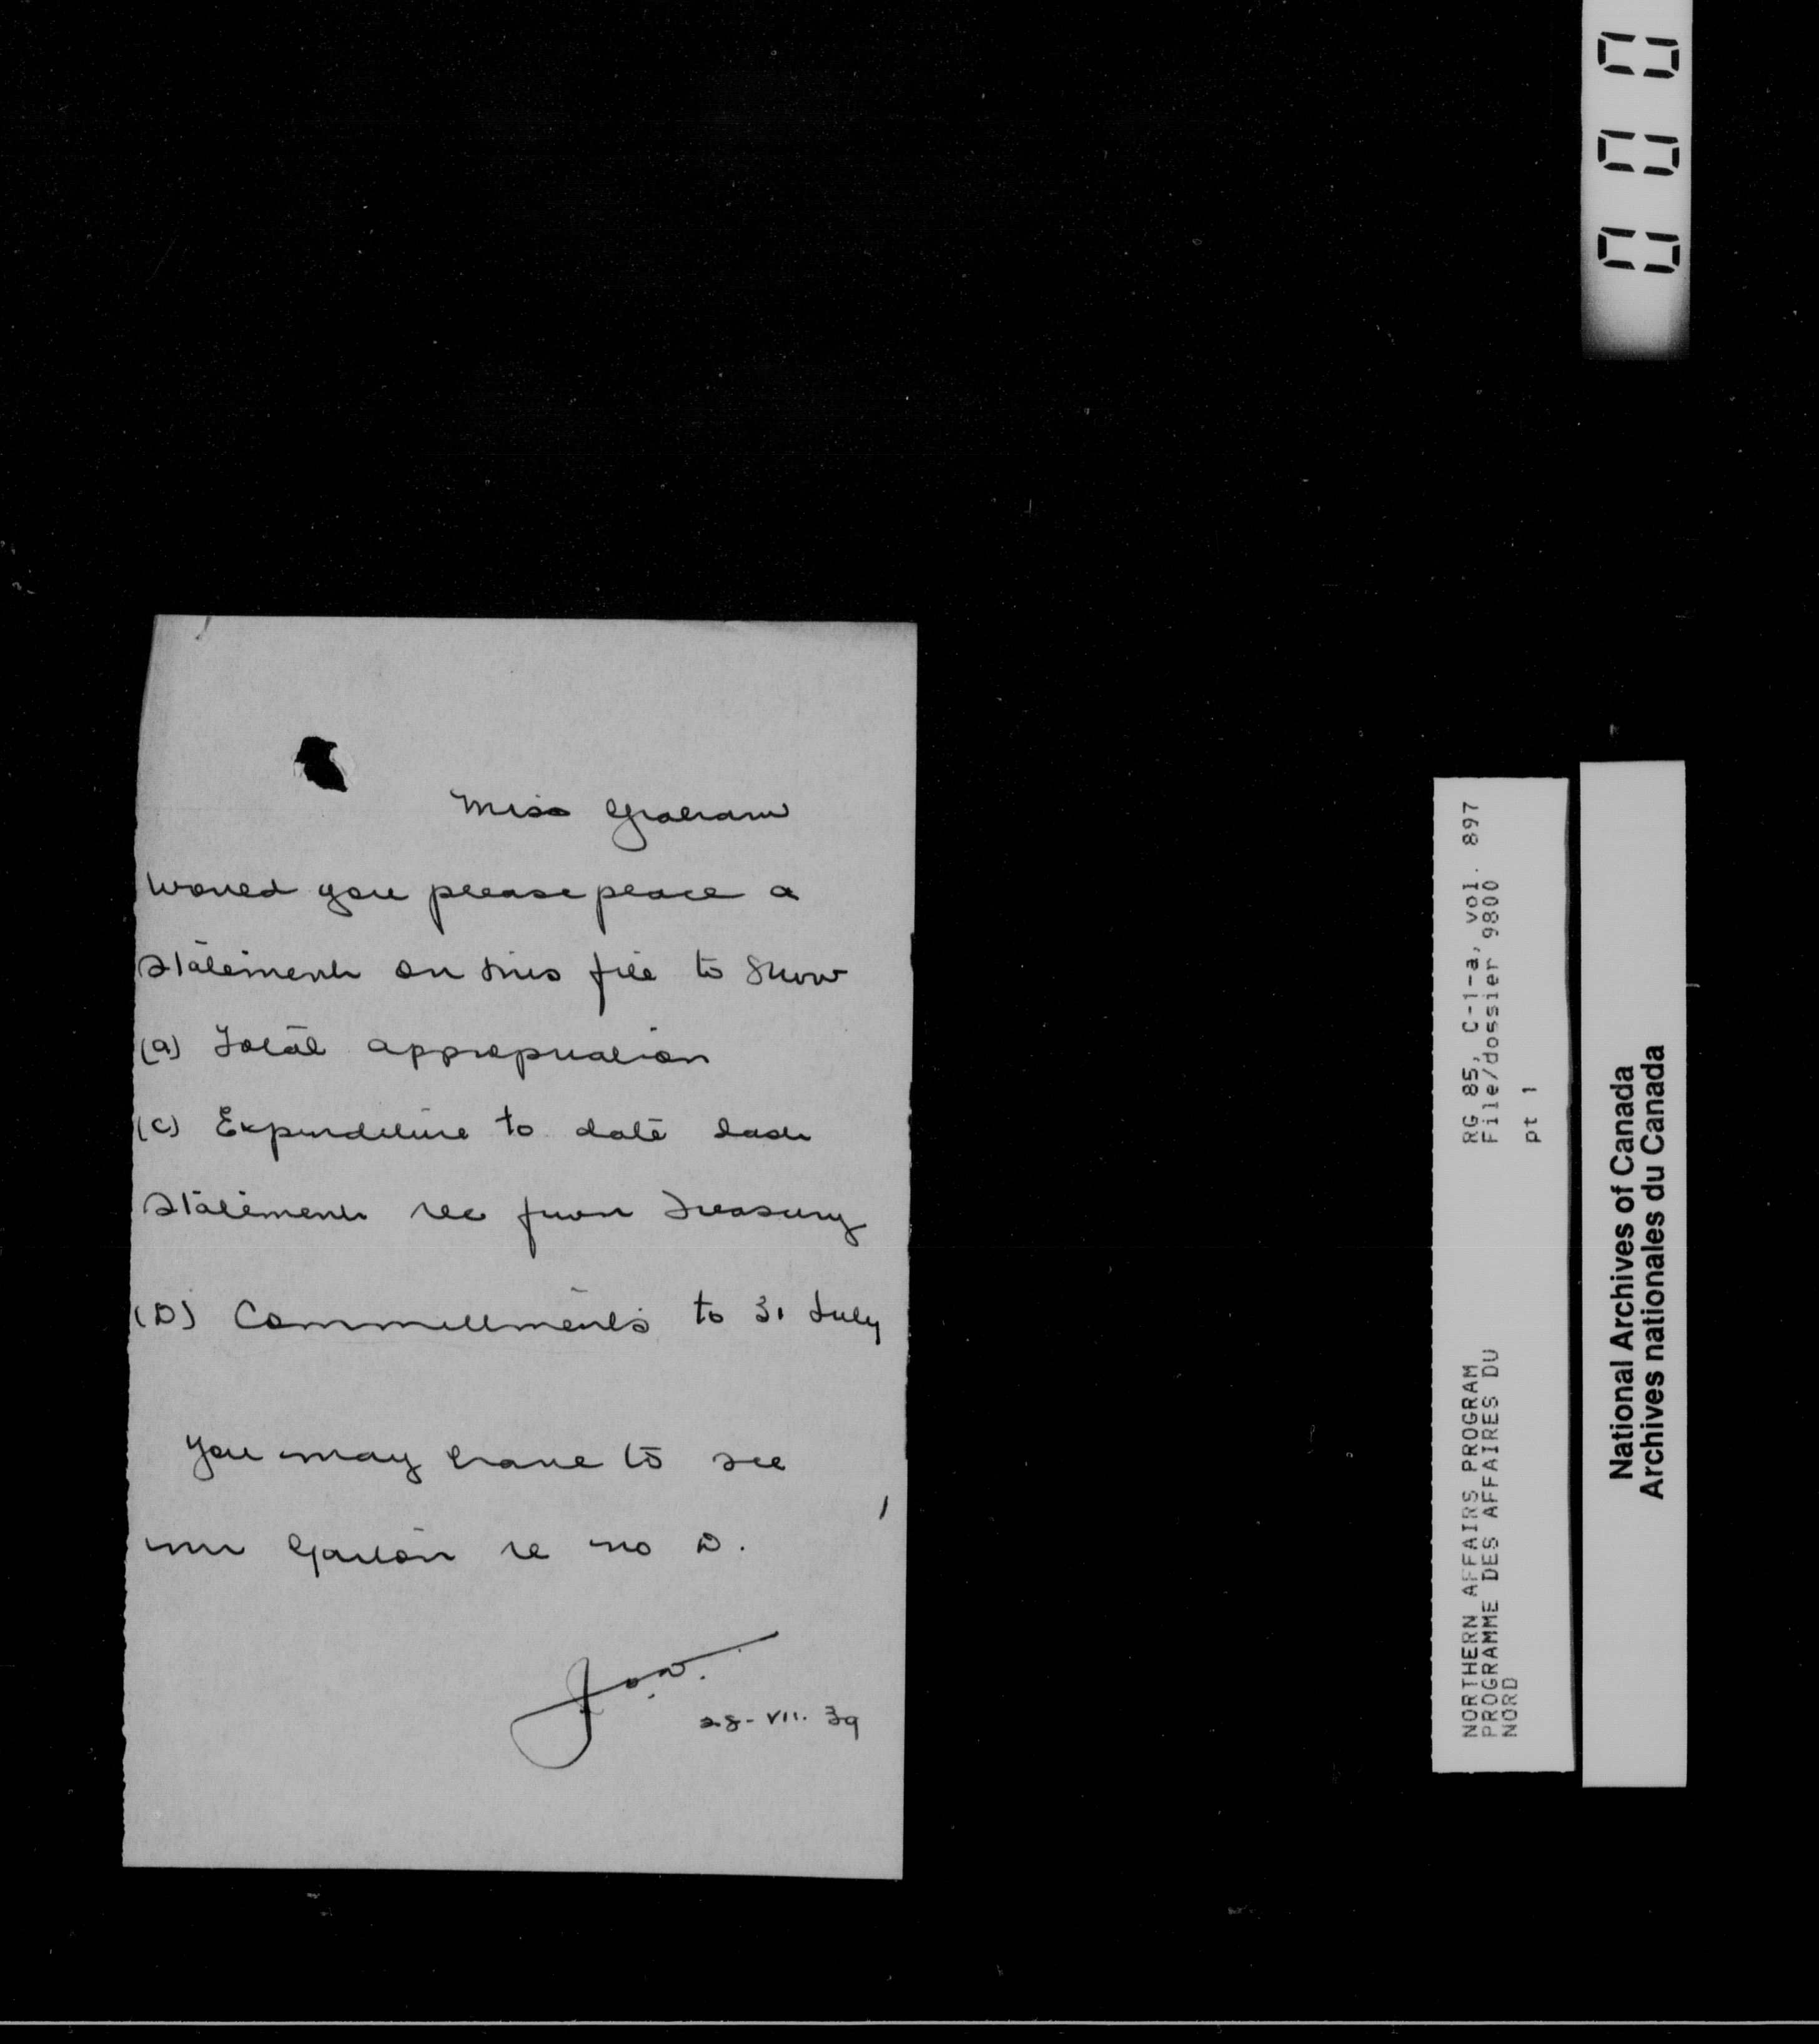 Miss Graham
Would you please place a
Statement on this file to show
(a) Total appropriation
(c) Expenditure to date last
Statement rec from Treasury
(D) Committments to 31 July
You may have to see
mr re no D.
28-VII. 39
RG 85, C-1-a, vol. 897
File/dossier 9800
pt 1
NORTHERN AFFAIRS PROGRAM
PROGRAMME DES AFFAIRES DU
NORD
National Archives of Canada
Archives nationales du Canada